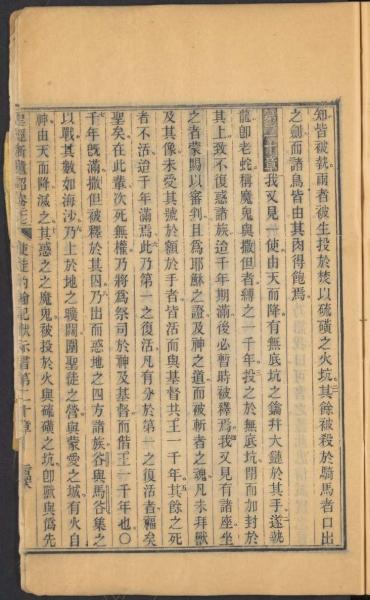 知皆被執兩者被生投於焚以硫磺之火坑其餘被殺於騎馬者口出
之劍而諸鳥皆由其肉得飽焉
第二十章我又見一使由天而降有無底坑之鑰并大鏈於其手遂執
龍即老蛇稱魔鬼與撒但者縛之一千年投之於無底坑閉而加封於
其上致不復惑諸族迨千年期滿後必暫時被釋焉我又見有諸座坐
之者蒙賜以審判且爲耶穌之證及神之道而被斬者之魂凡未拜獸
及其像未受其號於額於手者皆活而與基督共王一千年其餘之死
者不活迨千年滿焉此乃第一之復活凡有分於第一之復活者福矣
聖矣在此輩次死無權乃將爲祭司於神及基督而偕王一千年也〇
千年既滿撒但被釋於其囚乃出而惑地之四方諸族谷與馬谷集之
以戰其數如海沙乃上於地之曠闊圍聖徒之營與蒙愛之城有火自
神由天而降滅之其惑之之魔鬼被投於火與硫磺之坑卽獸與僞先
聖經新遺詔 使徒約翰記獻示書第二十章